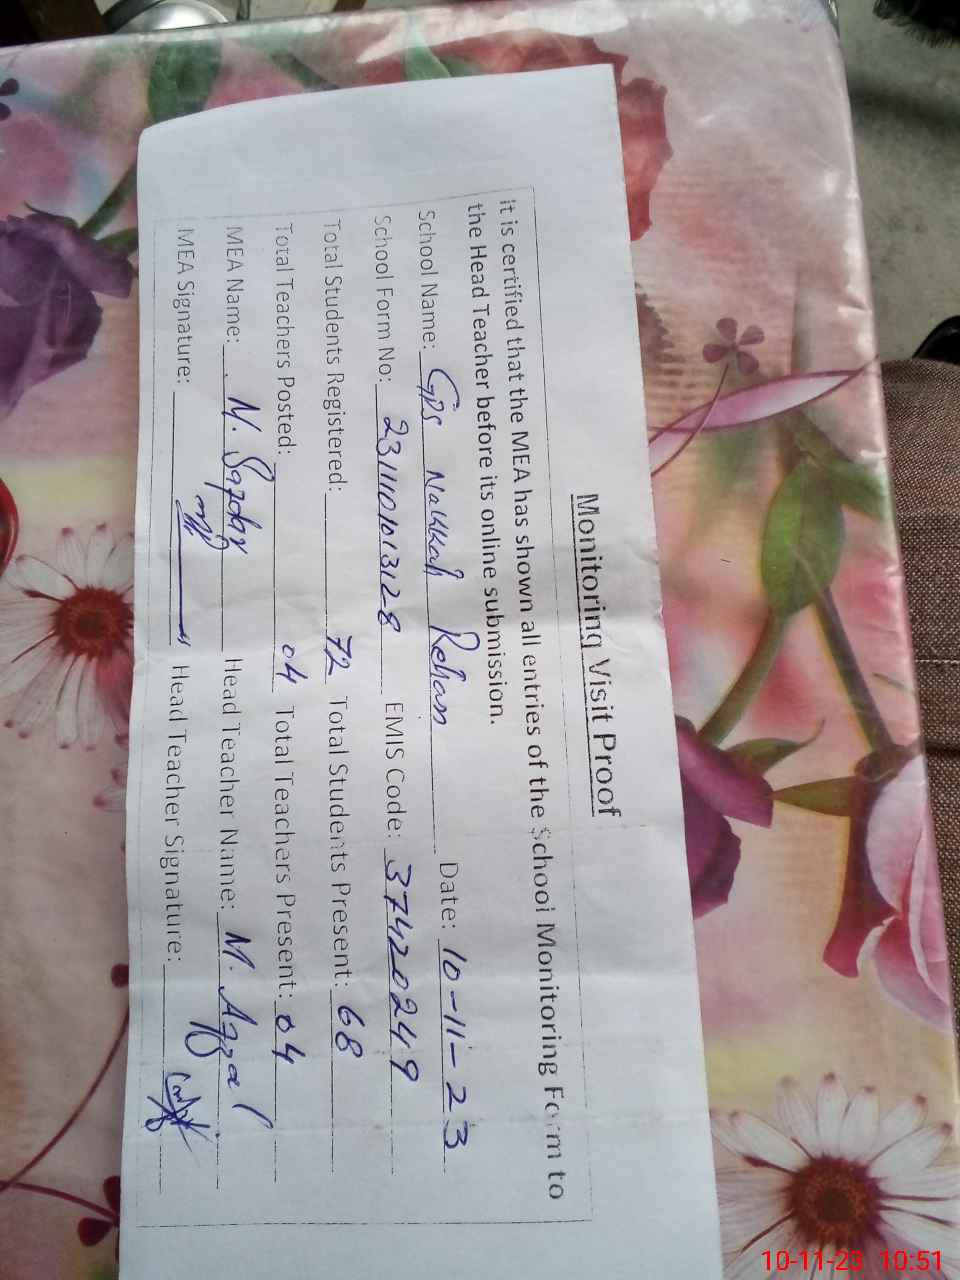 Monitoring Visit Proof
It is certified that the MEA has shown all entries of the School Monitoring Form to
the Head Teacher before its online submission.
School Name: GPS Nakkah Rehan Date: 10-11-23
School Form No: EMIS Code: 37420249
Total Students Registered: 72 Total Students Present: 68
Total Teachers Posted: 04 Total Teachers Present: 04
MEA Name: M. Head Teacher Name: M. Afzal
MEA Signature: Head Teacher Signature:
10-11-23 10:51